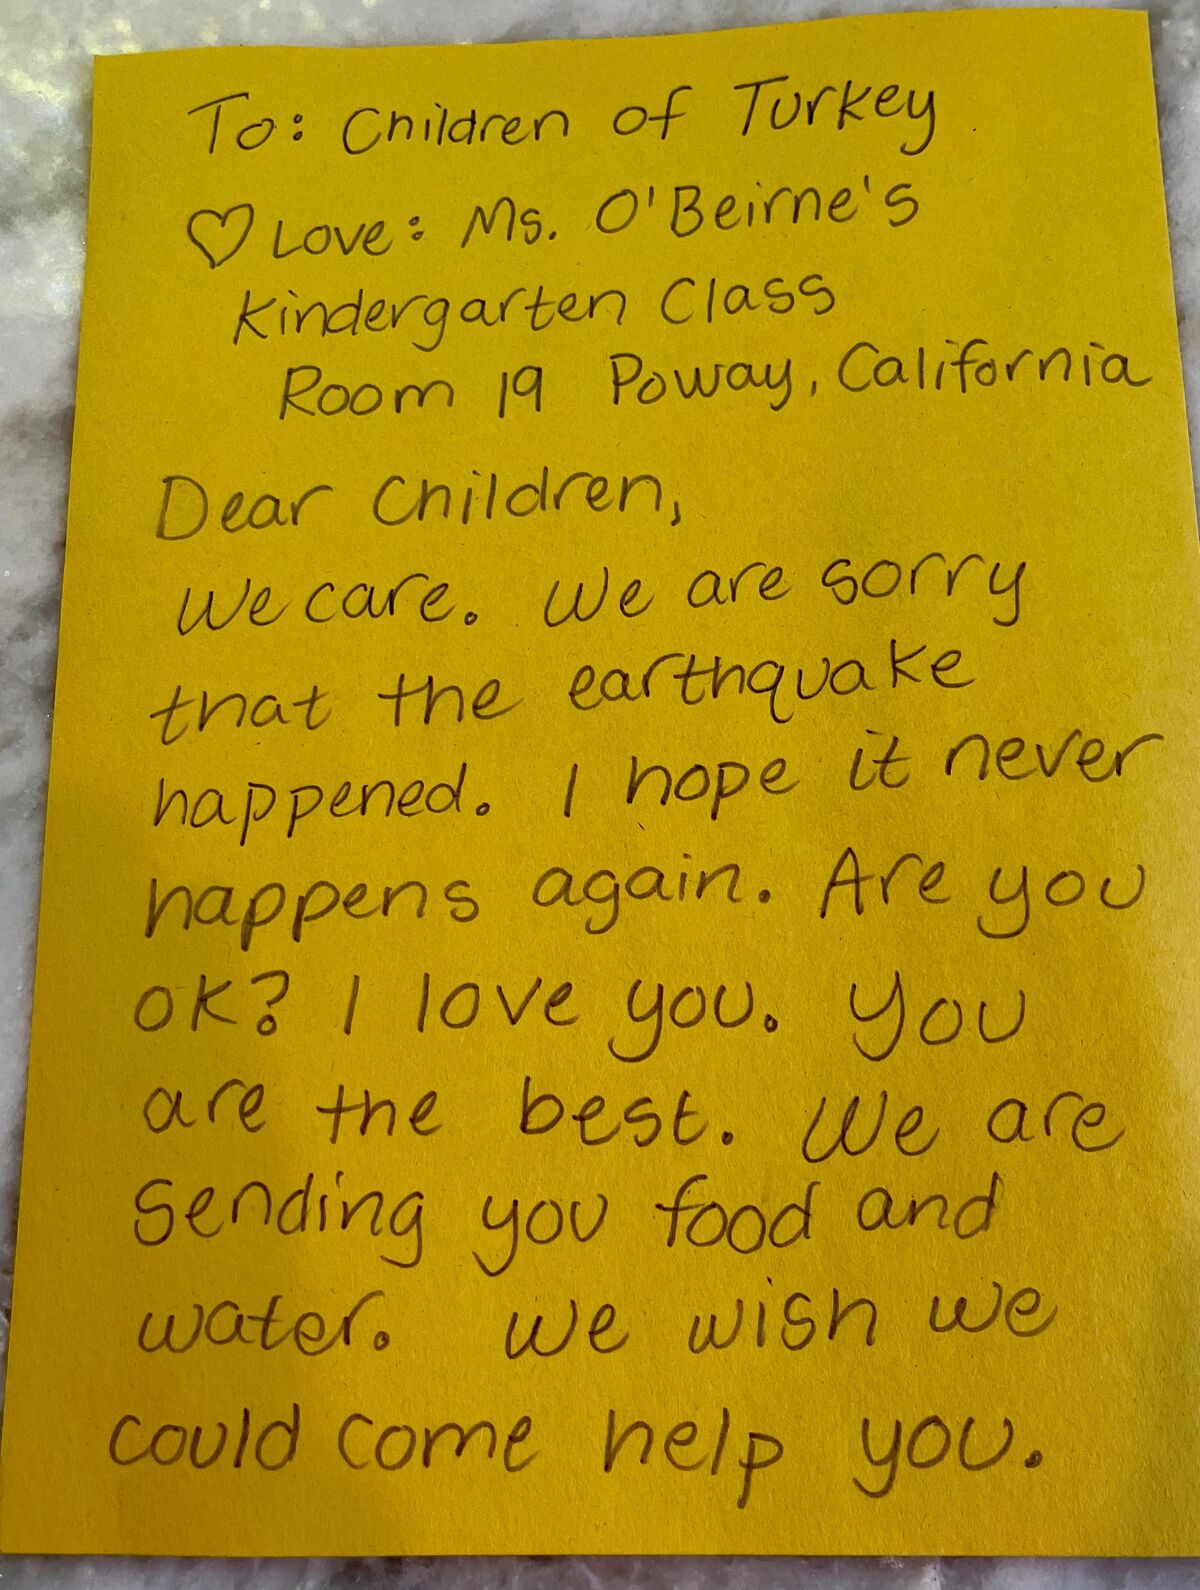 To: Children of Turkey
♡ Love: Ms. O'Beirne's
Kindergarten Class
Room 19 Poway, California
Dear Children,
We care. We are sorry
that the earthquake
happened. I hope it never
happens again. Are you
ok? I love you. You
are the best. We are
sending you food and
water. We wish we
could come help you.